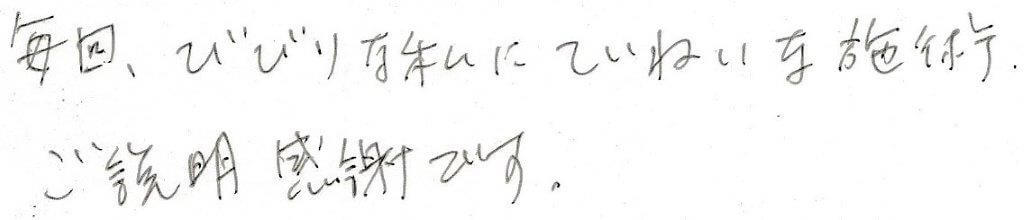 毎回、びびりな私にていねいな施術、
ご説明感謝です。